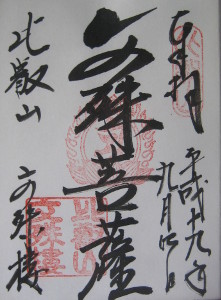 奉拝
平成十九年九月四日
文殊菩薩
比叡山
文殊楼
比叡山
文殊楼